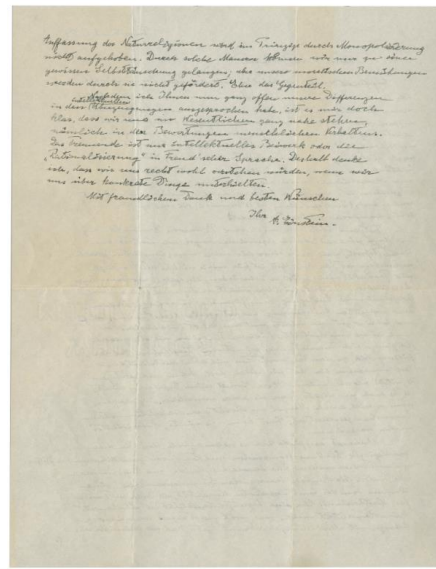 Auffassung der Naturreligionen wird im Prinzip durch Monopolisierung
nicht aufgehoben. Durch solche Mauern können wir nur zu einer
gewissen Selbsttäuschung gelangen, aber unsere moralischen Bemühungen
werden durch sie nicht gefördert. Eher das Gegenteil.
Nachdem ich Ihnen nun ganz offen unsere Differenzen
in den intellektuellen Überzeugungen ausgesprochen habe, ist es mir doch
klar, dass wir uns im Wesentlichen ganz nahe stehen,
nämlich in den Bewertungen menschlichen Verhaltens.
Das Trennende ist nur intellektuelles Beiwerk oder die
„Rationalisierung" in Freud'scher Sprache. Deshalb denke
ich, dass wir uns recht wohl verstehen würden, wenn wir
uns über konkrete Dinge unterhielten.
Mit freundlichem Dank und besten Wünschen
Ihr A. Einstein.